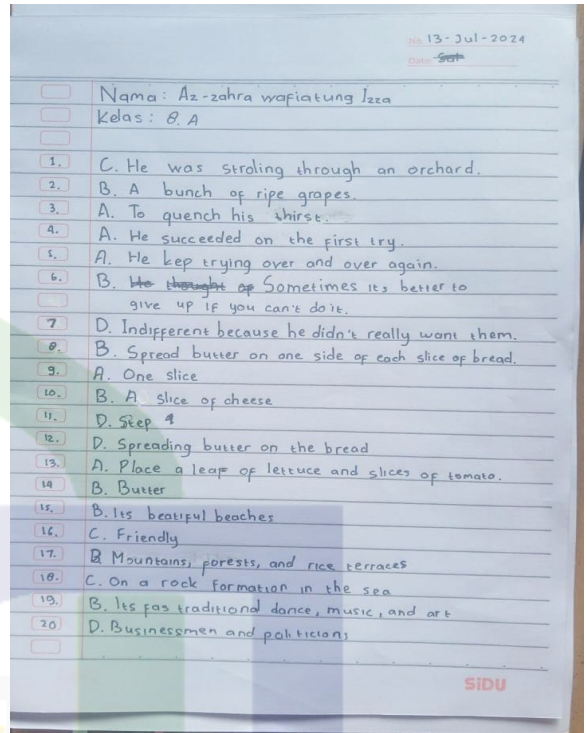 No. 13-Jul-2024
Date
Nama : Az-zahra wafiatung Izza
Kelas : 8. A
1. C. He was stroling through an orchard.
2. B. A bunch of ripe grapes.
3. A. To quench his thirst.
4. A. He succeeded on the first try.
5. A. He kep trying over and over again.
6. B. He thought of Sometimes its better to
give up if you can't do it.
7 D. Indifferent because he didn't really want them.
8. B. Spread butter on one side of each slice of bread.
9. A. One slice
10. B. A slice of cheese
11. D. Step 4
12. D. Spreading butter on the bread
13. A. Place a leaf of lettuce and slices of tomato.
14 B. Butter
15. B. Its beatiful beaches
16. C. Friendly
17. B Mountains, porests, and rice terraces
18. C. On a rock formation in the sea
19. B. Its fas traditional dance, music, and art
20 D. Businessmen and politicians
SiDU